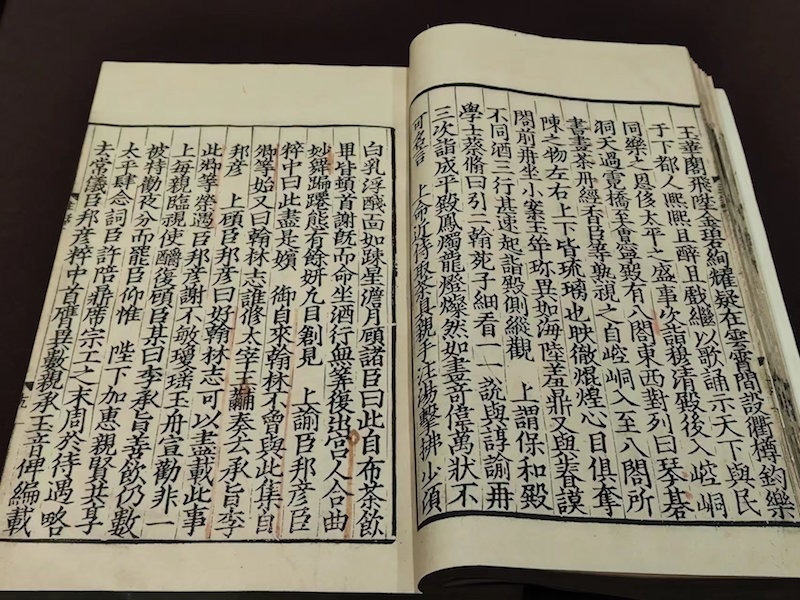 玉華閣飛陞金碧絢耀疑在雲霄間設衢樽鈞樂
于下都人熙熙且醉且戲繼以歌誦示天下與民
同樂之恩侈太平之盛事次詣穆清殿後入崆峒
洞天過霓橋至會寧殿有八閣東西對列曰琴棊
書畫茶丹經香臣等熟視之自崆峒入至八閣所
陳之物左右上下皆琉璃也映徹焜煌心目俱奪
閣前再坐小案玉斝珍異如海陸羞鼎又與睿謨
不同酒三行甚速起詣殿側縱觀 上謂保和殿
學士蔡翛曰引二翰苑子細看一一說與諄諭再
三次詣成平殿鳳燭龍燈燦然如晝奇偉萬狀不
可名言 上命近侍取茶具親手注湯擊拂少頃
白乳浮醆面如疎星澹月顧諸臣曰此自布茶飲
畢皆頓首謝旣而命坐酒行無筭復出宮人合曲
妙舞蹁躚態有餘妍凡目創見 上諭臣邦彥臣
粹中曰此盡是嬪 御自來翰林不曾與此集自
卿等始又曰翰林志誰修太宰王黼奏云承旨李
邦彥 上顧臣邦彥曰好翰林志可以盡載此事
此卿等榮遇臣邦彥謝不敏瓊瑤玉舟宣勸非一
上每親臨視使釂復顧臣某曰李承旨善飲仍數
被特勸夜分而罷臣仰惟 陛下加惠親賢共享
太平肆念詞臣許陪鼎席宗工之末周於待遇略
去常儀臣邦彥粹中首膺異數親承玉音俾編載